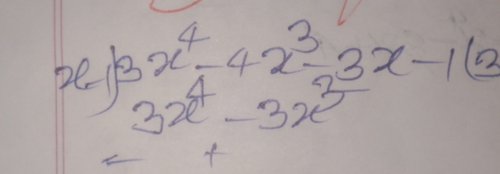 x-1)3x⁴-4x³-3x-1(3
3x⁴-3x³
- +